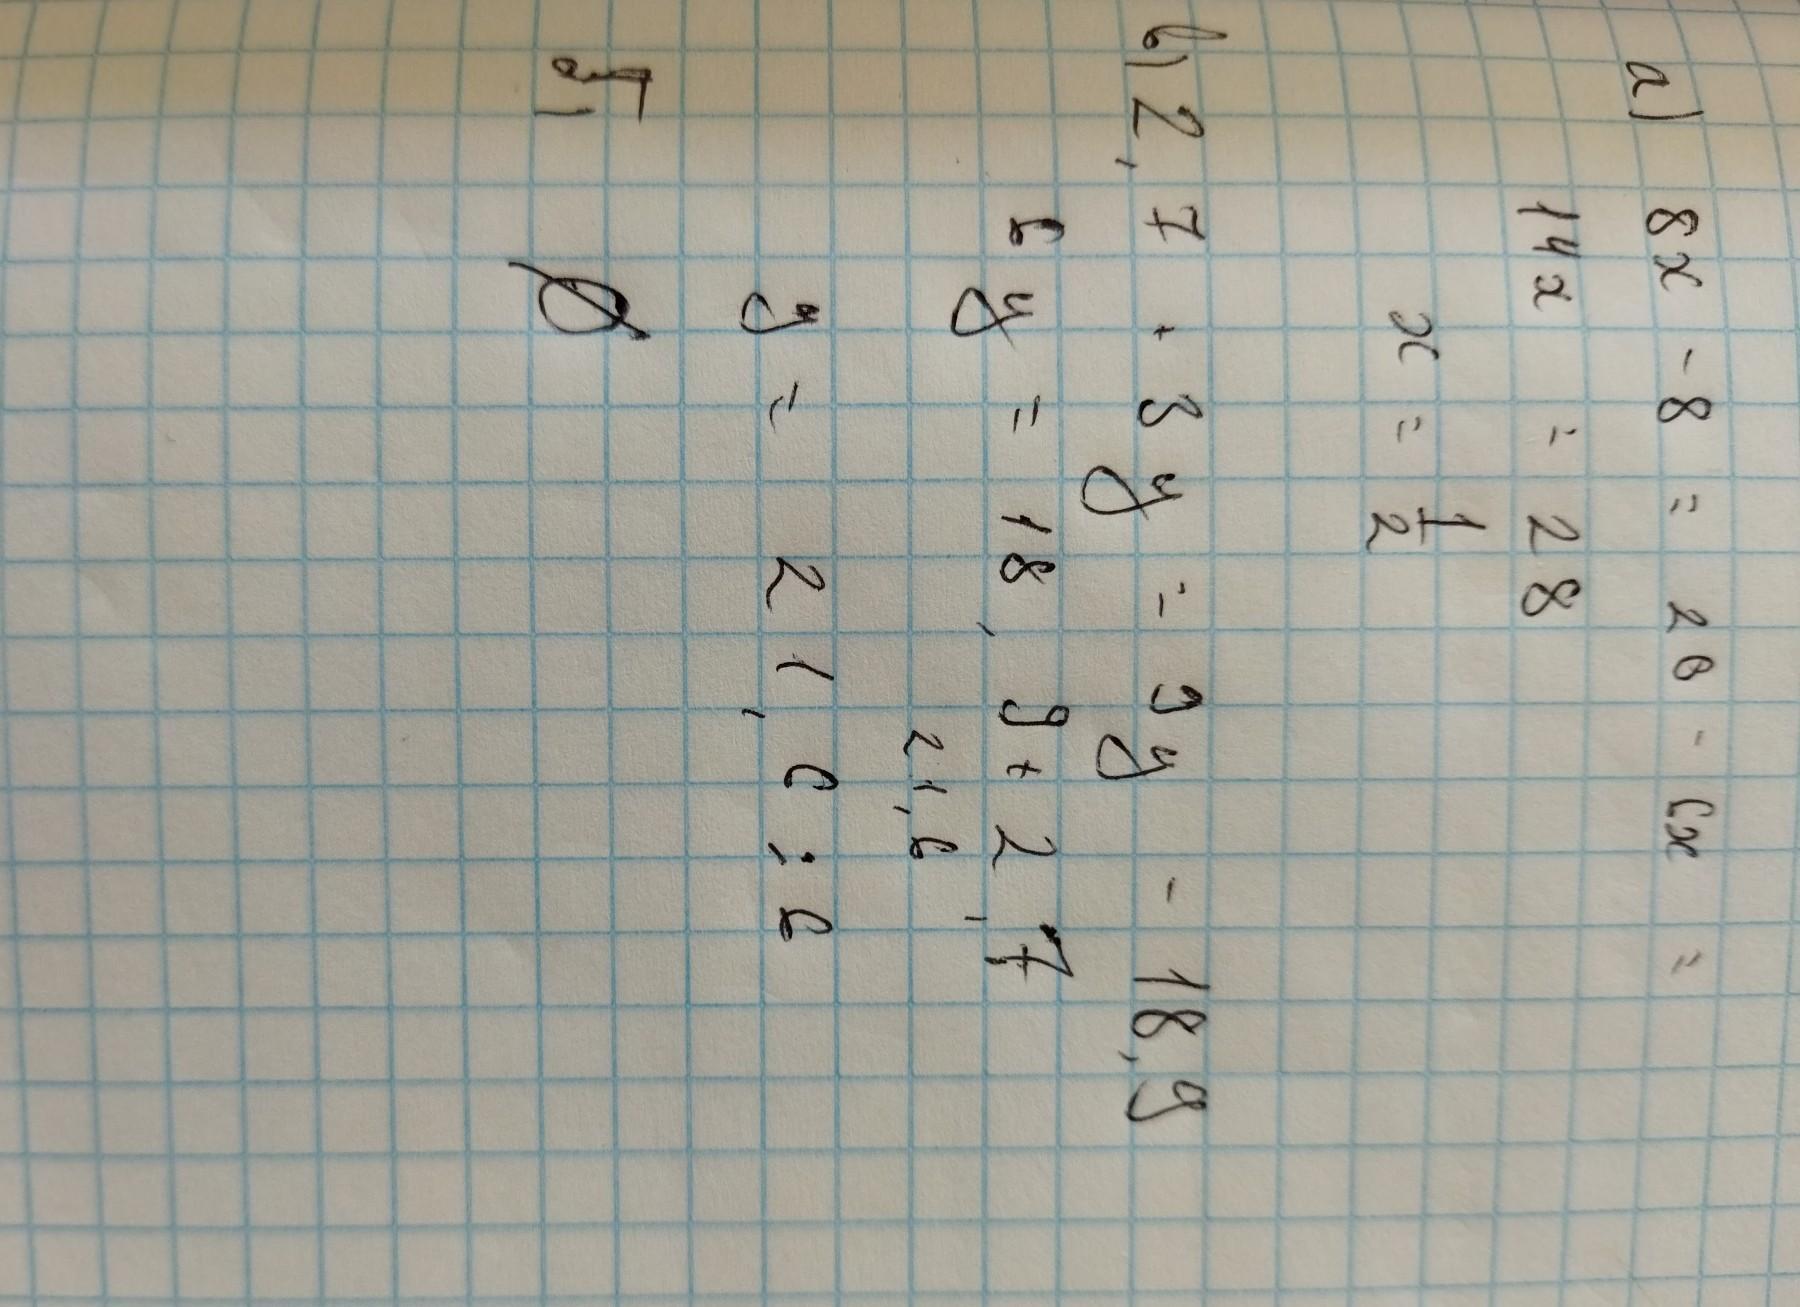 а) 8x - 8 = 20 - 6x =
14x = 28
x = 1/2
в) 2,7 + 3y = 9y - 18,9
6y = 18,9 + 2,7
21,6
y = 21,6 : 6
б) ∅